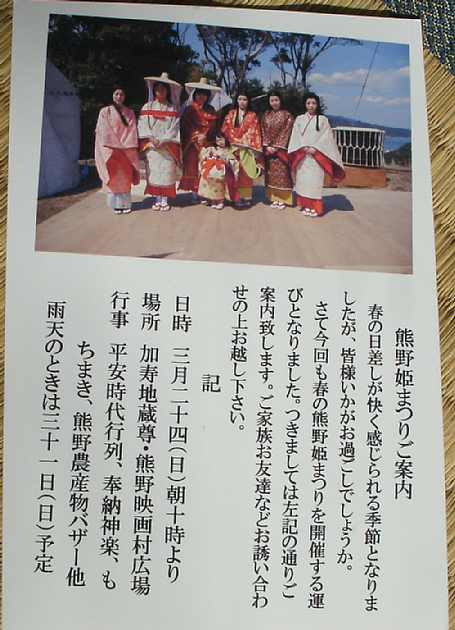 熊野姫まつりご案内
春の日差しが快く感じられる季節となりま
したが、皆様いかがお過ごしでしょうか。
さて今回も春の熊野姫まつりを開催する運
びとなりました。つきましては左記の通りご
案内致します。ご家族お友達などお誘い合わ
せの上お越し下さい。
記
日時 三月二十四(日)朝十時より
場所 加寿地蔵尊・熊野映画村広場
行事 平安時代行列、奉納神楽、も
ちまき、熊野農産物バザー他
雨天のときは三十一日(日)予定